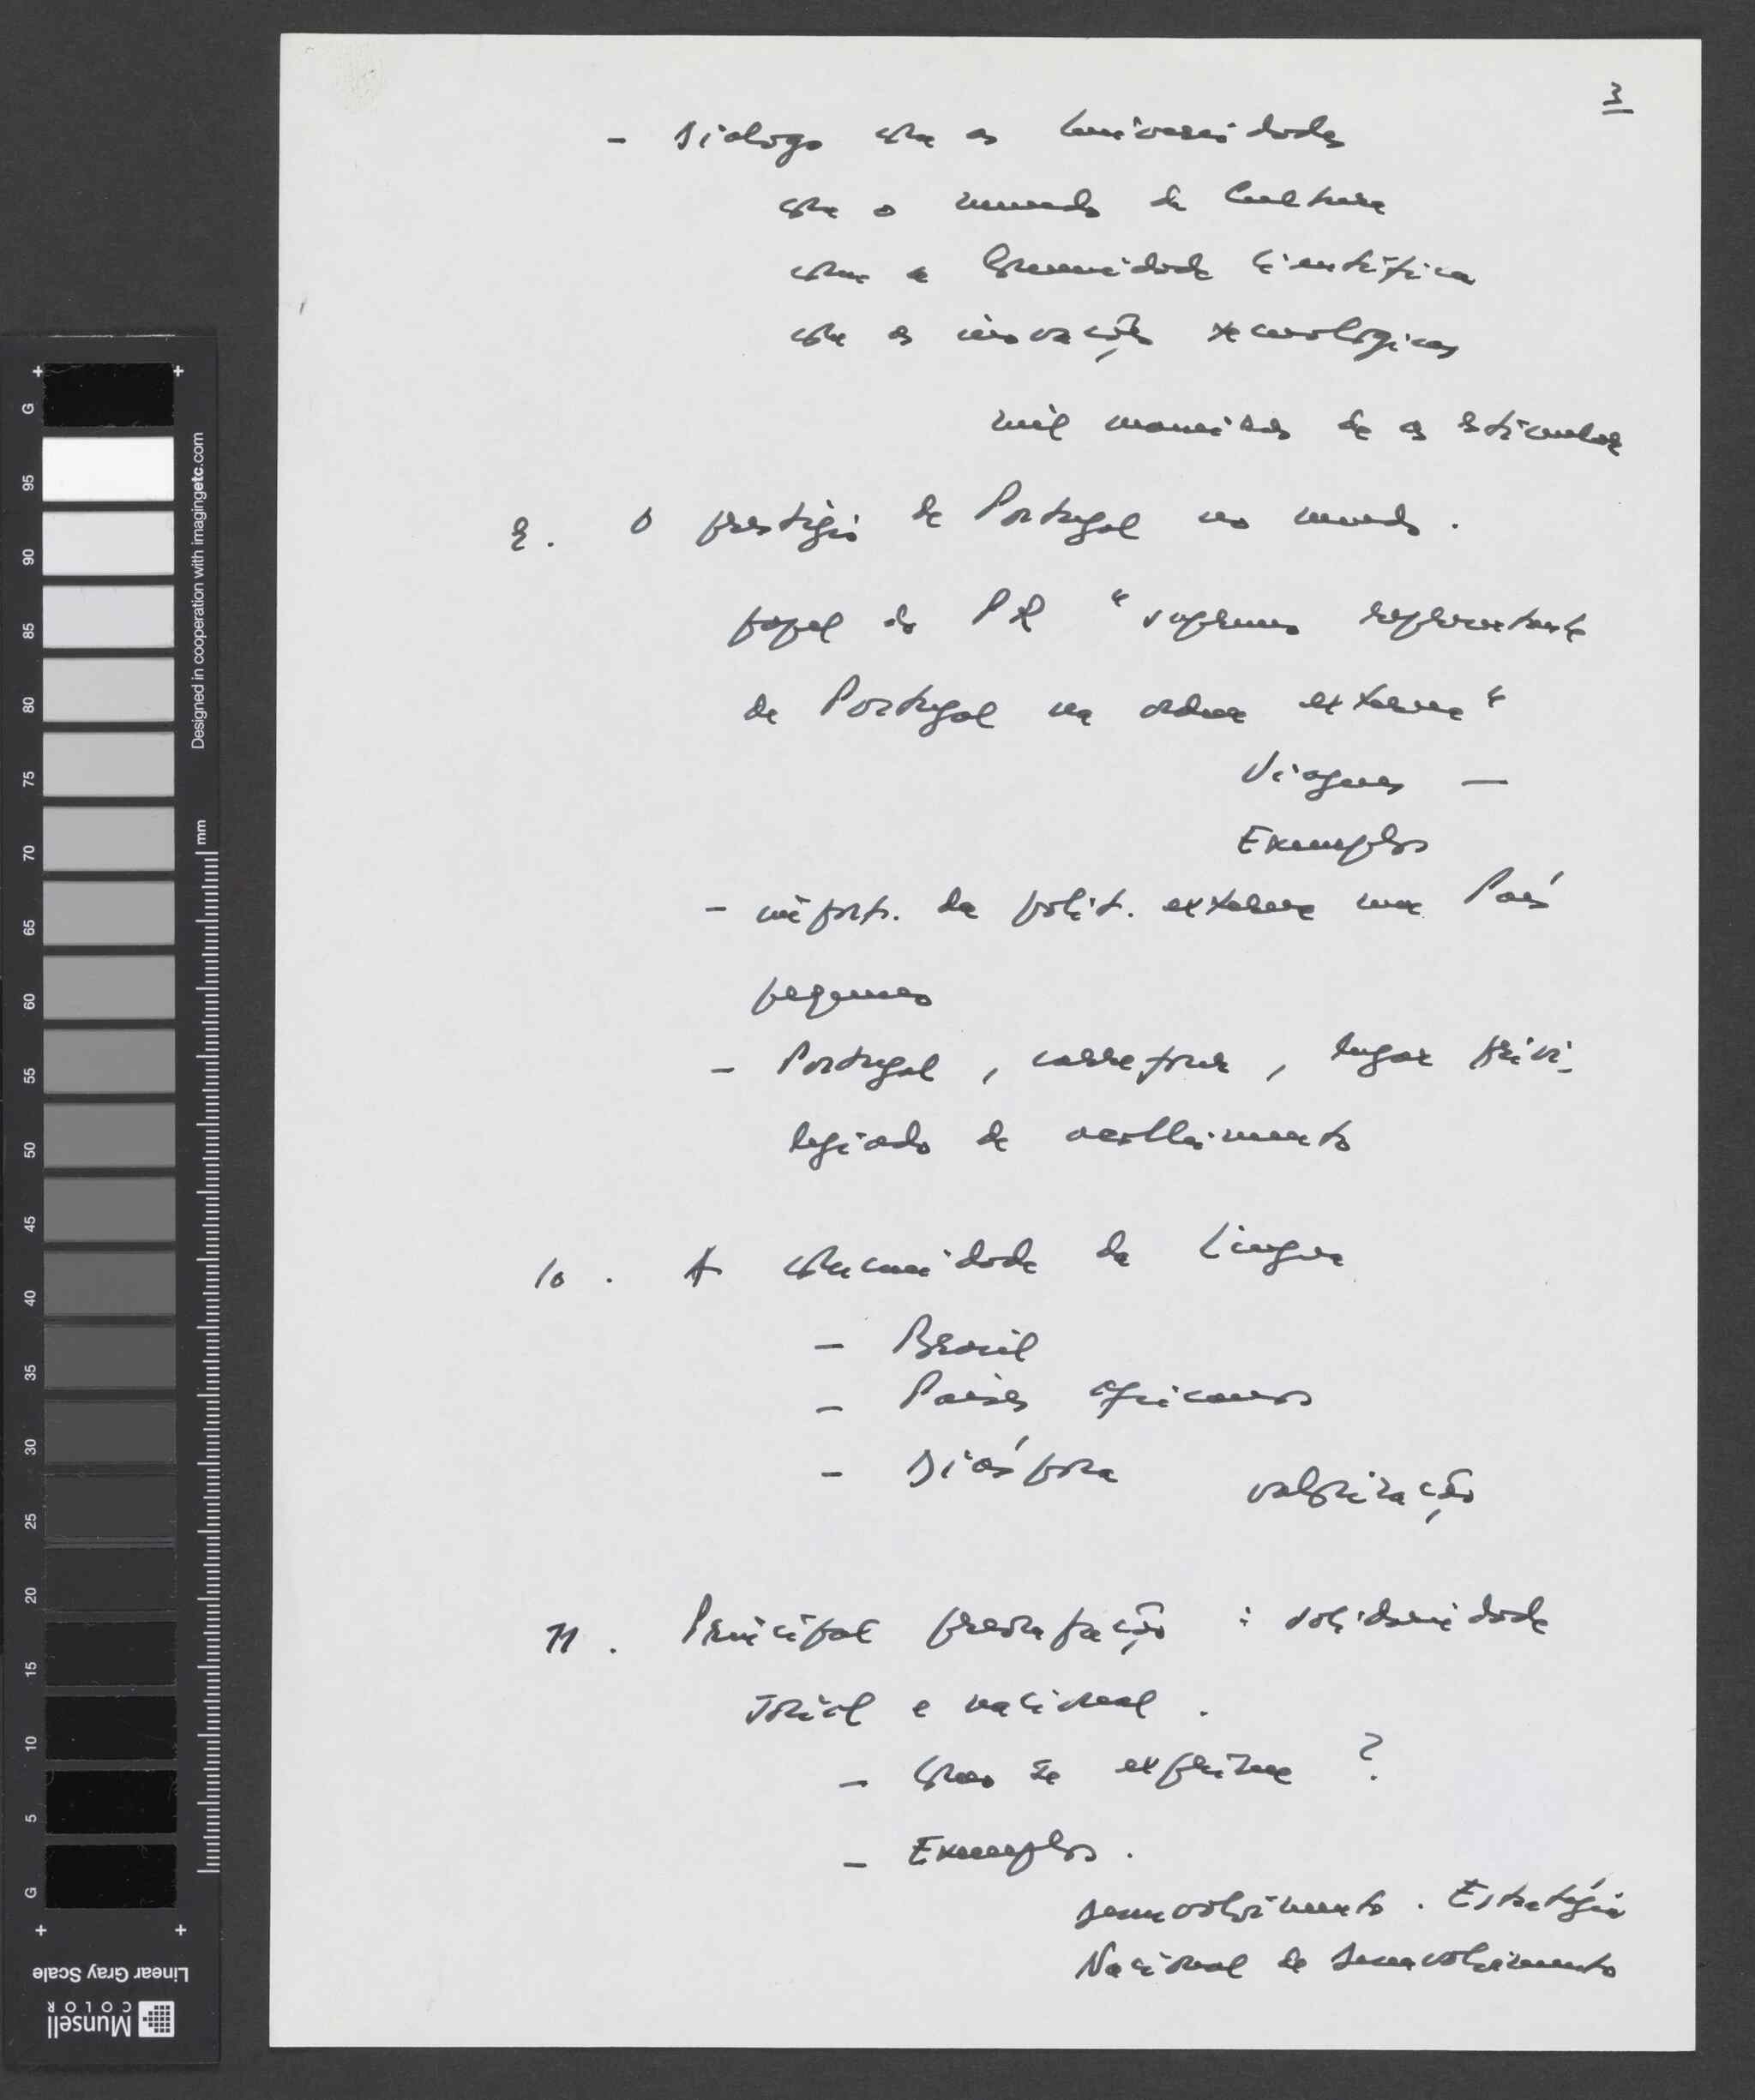 3
- Diálogo com as Universidades
com o mundo da Cultura
com a Comunidade Científica
com as inovações tecnológicas
mil maneiras de as estimular
9. O prestígio de Portugal no mundo.
papel do PR "supremo representante
de Portugal na ordem externa"
Viagens —
Exemplos
- import. da polit. externa num País
pequeno
- Portugal, carrefour, lugar privi-
legiado de acolhimento
10. A comunidade da Língua
- Brasil
- Países africanos
- Diáspora valorização
11. Principal preocupação : solidariedade
social e nacional.
- Como se exprime ?
- Exemplos.
Desenvolvimento. Estratégia
Nacional de Desenvolvimento
+ +
G
95
90
85
80
75
70
65
60
55
50
45
40
35
30
25
20
15
10
5
G
+ +
mm
Designed in cooperation with imagingetc.com
Linear Gray Scale
Munsell
COLOR